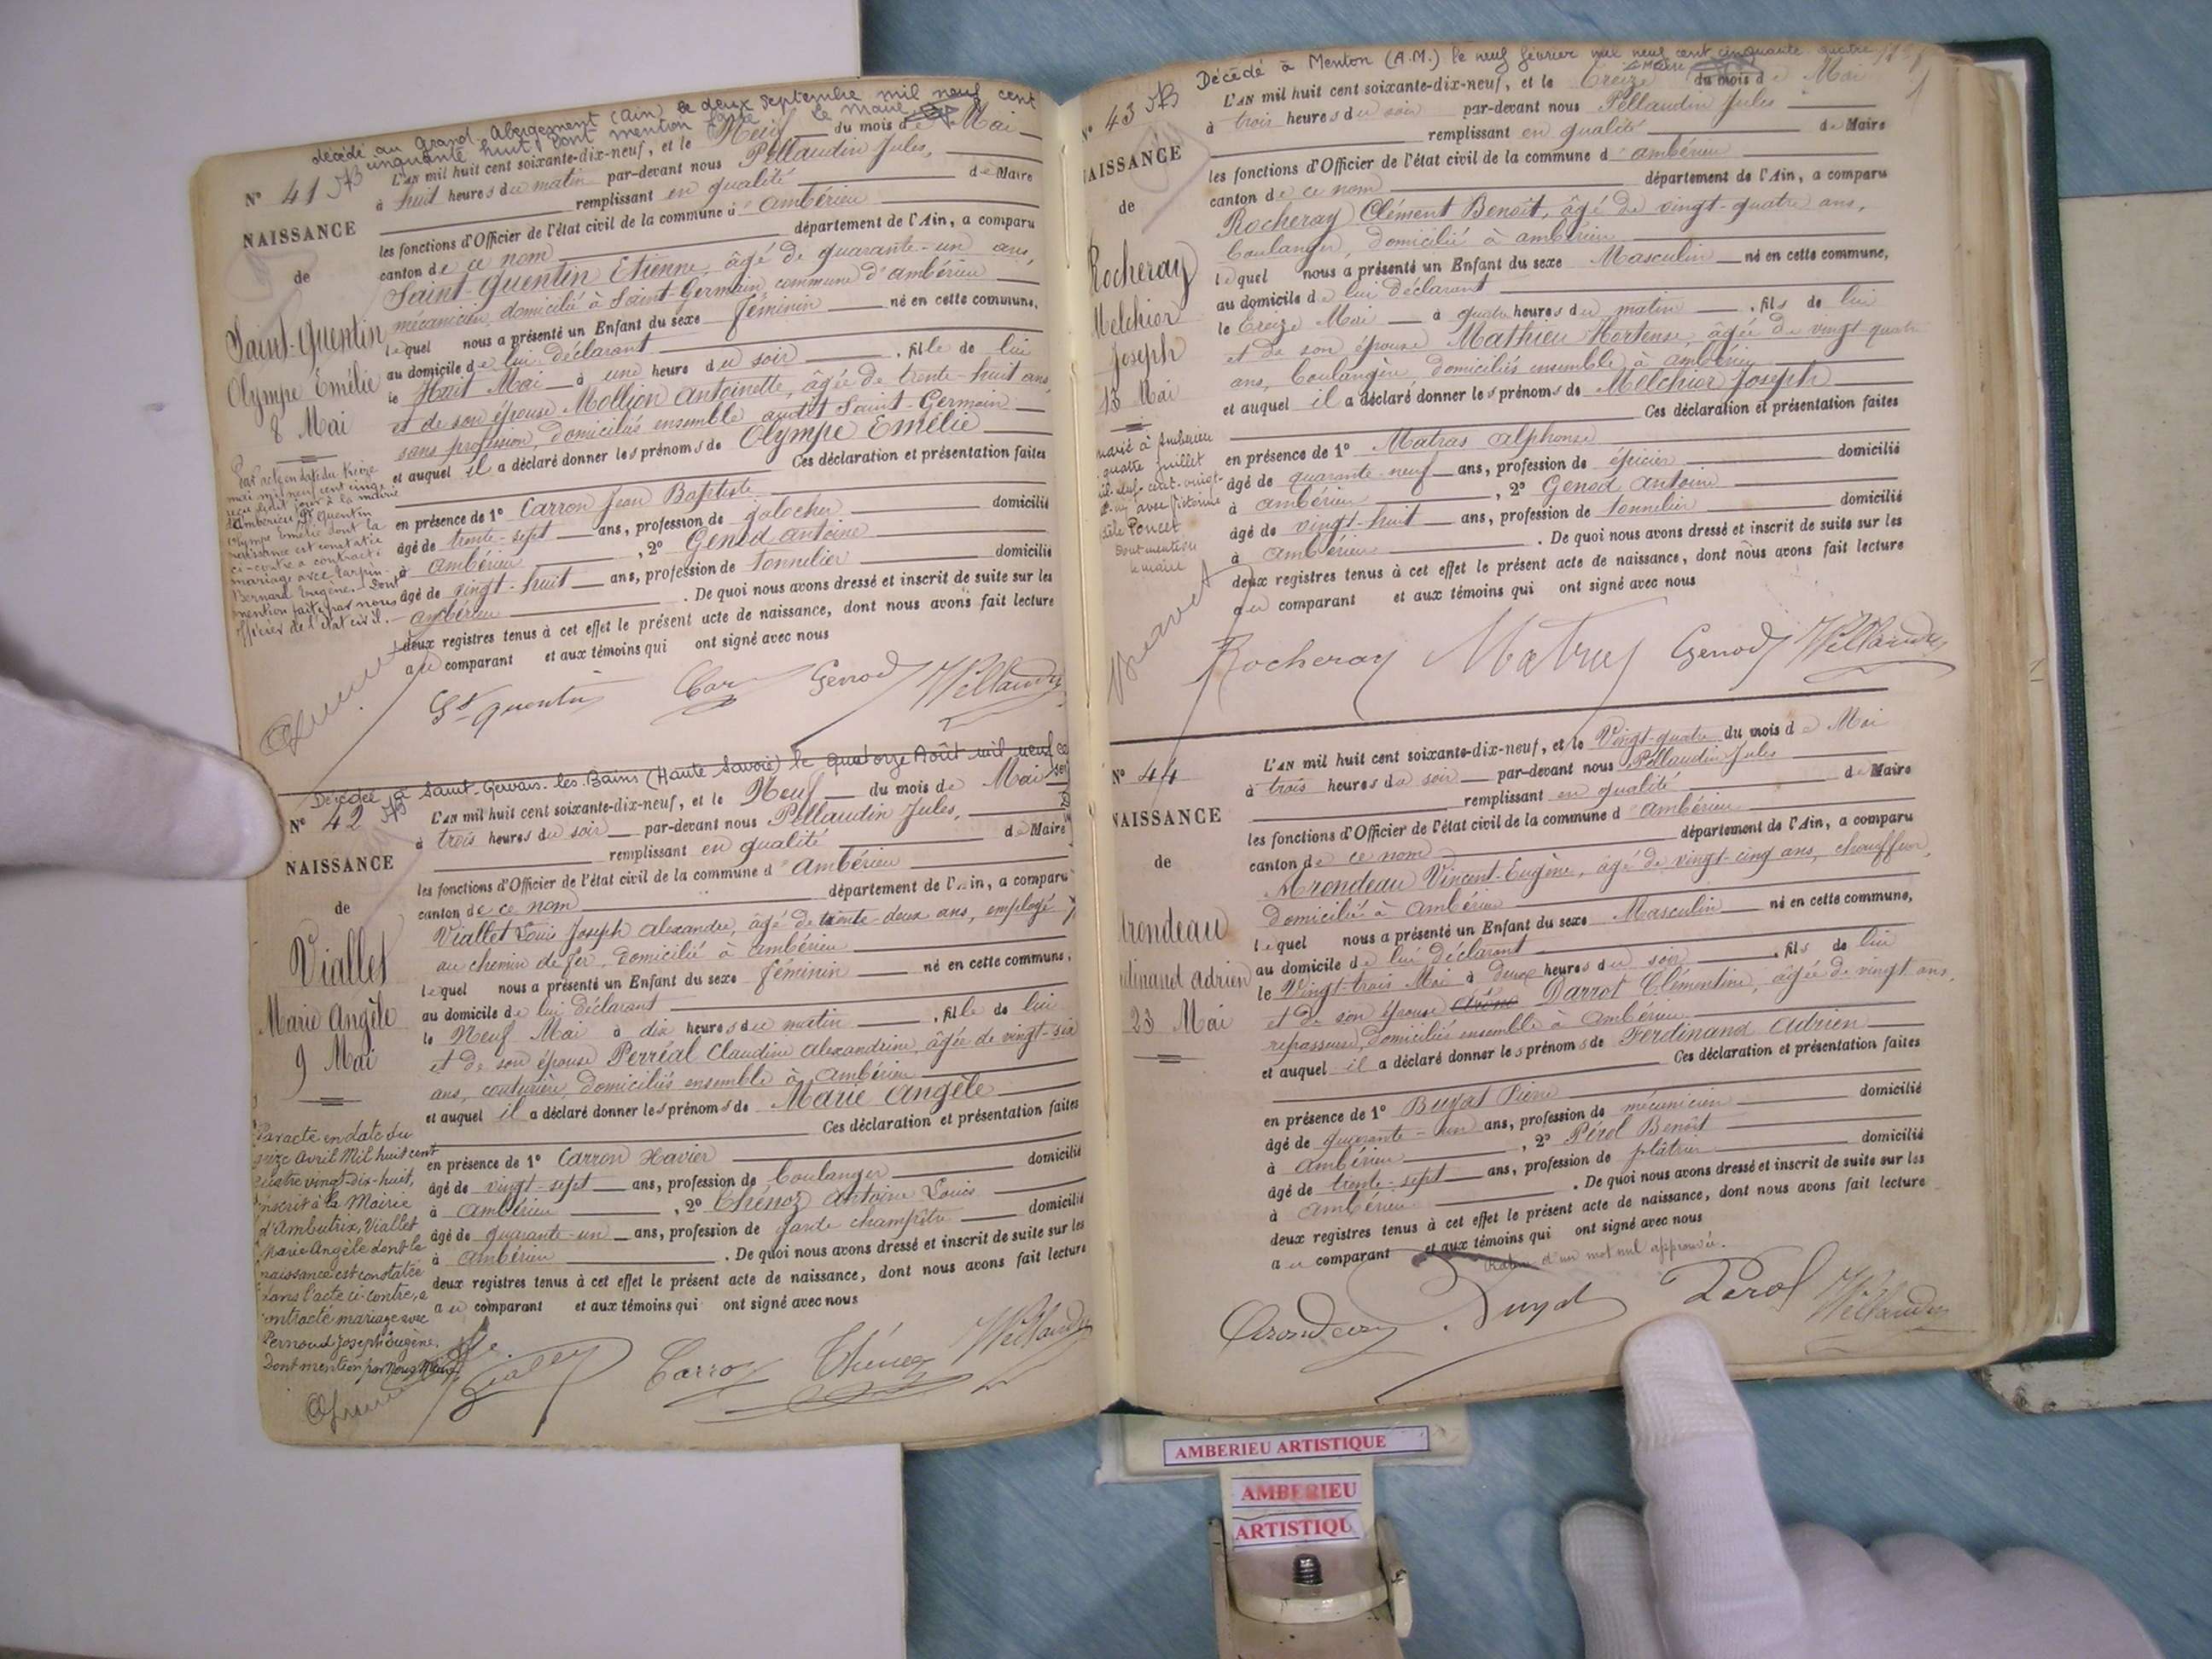 décédé au Grand-Abergement (Ain) le deux septembre mil neuf cent
cinquante huit dont mention faite le Maire
N° 41
L'an mil huit cent soixante-dix-neuf, et le Neuf du mois de Mai
à huit heures du matin par-devant nous Pellaudin Jules,
remplissant en qualité de Maire
NAISSANCE
les fonctions d'Officier de l'état civil de la commune d'Ambérieu
de
canton de ce nom département de l'Ain, a comparu
Saint-Quentin Etienne, âgé de quarante-un ans,
mécanicien, domicilié à Saint-Germain, commune d'ambérieu
Saint-Quentin
lequel nous a présenté un Enfant du sexe féminin né en cette commune,
Olympe Emélie
au domicile de lui déclarant
8 Mai
le Huit Mai à une heure du soir, fille de lui
et de son épouse Mollion Antoinette, âgée de trente-huit ans
sans profession, domiciliés ensemble audit Saint-Germain
et auquel il a déclaré donner les prénoms de Olympe Emélie
Ces déclaration et présentation faites
en présence de 1° Carron Jean Baptiste domicilié
âgé de trente-sept ans, profession de galocher
à Ambérieu, 2° Genod antoine domicilié
âgé de vingt-huit ans, profession de tonnelier
ambérieu. De quoi nous avons dressé et inscrit de suite sur les
deux registres tenus à cet effet le présent acte de naissance, dont nous avons fait lecture
au comparant et aux témoins qui ont signé avec nous
Par acte en date du treize
mai mil neuf cent cinq
reçu ledit jour à la mairie
d'Ambérieu, St Quentin
Olympe Emélie dont la
naissance est constatée
ci-contre a contracté
mariage avec Tarpin
Bernard Eugène. Dont
mention faite par nous
officier de l'état civil.
St quentin Car Genod Pellaudin
Décédée à Saint-Gervais-les-Bains (Haute Savoie) le quatorze Août mil neuf
N° 42
L'an mil huit cent soixante-dix-neuf, et le Neuf du mois de Mai
à trois heures du soir par-devant nous Pellaudin Jules,
remplissant en qualité de Maire
NAISSANCE
les fonctions d'Officier de l'état civil de la commune d'Ambérieu
de
canton de ce nom département de l'Ain, a comparu
Viallet Louis Joseph Alexandre, âgé de trente-deux ans, employé
au chemin de fer, domicilié à Ambérieu
Viallet
lequel nous a présenté un Enfant du sexe féminin né en cette commune,
Marie Angèle
au domicile de lui déclarant
9 Mai
le Neuf Mai à dix heures du matin, fille de lui
et de son épouse Perréal Claudine Alexandrine, âgée de vingt-six
ans, couturière, domiciliés ensemble à Ambérieu
et auquel il a déclaré donner les prénoms de Marie Angèle
Ces déclaration et présentation faites
en présence de 1° Carron Xavier domicilié
âgé de vingt-sept ans, profession de boulanger
à Ambérieu, 2° Thénoz Antoine Louis domicilié
âgé de quarante-un ans, profession de garde champêtre
à Ambérieu. De quoi nous avons dressé et inscrit de suite sur les
deux registres tenus à cet effet le présent acte de naissance, dont nous avons fait lecture
au comparant et aux témoins qui ont signé avec nous
Par acte en date du
seize Avril Mil huit cent
quatre vingt-dix-huit,
inscrit à la Mairie
d'Ambutrix, Viallet
Marie Angèle dont la
naissance est constatée
dans l'acte ci-contre, a
contracté mariage avec
Pernoud Joseph Eugène.
Dont mention par Nous Maire
Viallet Carron Thénoz Pellaudin
Décédé à Menton (A.M.) le neuf février mil neuf cent cinquante quatre
Le Maire
N° 43
L'an mil huit cent soixante-dix-neuf, et le Treize du mois de Mai
à trois heures du soir par-devant nous Pellaudin Jules
remplissant en qualité de Maire
NAISSANCE
les fonctions d'Officier de l'état civil de la commune d'ambérieu
de
canton de ce nom département de l'Ain, a comparu
Rocheray Clément Benoît, âgé de vingt-quatre ans,
boulanger, domicilié à ambérieu
Rocheray
lequel nous a présenté un Enfant du sexe Masculin né en cette commune,
Melchior
au domicile de lui déclarant
Joseph
le Treize Mai à quatre heures du matin, fils de lui
13 Mai
et de son épouse Mathieu Hortense, âgée de vingt-quatre
ans, boulangère, domiciliés ensemble à ambérieu
et auquel il a déclaré donner les prénoms de Melchior Joseph
Ces déclaration et présentation faites
en présence de 1° Matras Alphonse domicilié
âgé de quarante-neuf ans, profession de épicier
à Ambérieu, 2° Genod Antoine domicilié
âgé de vingt-huit ans, profession de tonnelier
à Ambérieu. De quoi nous avons dressé et inscrit de suite sur les
deux registres tenus à cet effet le présent acte de naissance, dont nous avons fait lecture
au comparant et aux témoins qui ont signé avec nous
marié à Ambérieu
quatre juillet
mil-neuf-cent-vingt-
avec Victorine
Poncet
Dont mention
le maire
Rocheray Matras Genod Pellaudin
N° 44
L'an mil huit cent soixante-dix-neuf, et le Vingt-quatre du mois de Mai
à trois heures du soir par-devant nous Pellaudin Jules
remplissant en qualité de Maire
NAISSANCE
les fonctions d'Officier de l'état civil de la commune d'Ambérieu
de
canton de ce nom département de l'Ain, a comparu
Arondeau Vincent-Eugène, âgé de vingt-cinq ans, chauffeur,
domicilié à Ambérieu
Arondeau
lequel nous a présenté un Enfant du sexe Masculin né en cette commune,
dinand Adrien
au domicile de lui déclarant
23 Mai
le Vingt-trois Mai à deux heures du soir, fils de lui
et de son épouse Darrot Clémentine, âgée de vingt ans,
repasseuse, domiciliés ensemble à Ambérieu
et auquel il a déclaré donner les prénoms de Ferdinand Adrien
Ces déclaration et présentation faites
en présence de 1° Buyat Pierre domicilié
âgé de quarante-un ans, profession de mécanicien
à Ambérieu, 2° Pérol Benoît domicilié
âgé de trente-sept ans, profession de plâtrier
à Ambérieu. De quoi nous avons dressé et inscrit de suite sur les
deux registres tenus à cet effet le présent acte de naissance, dont nous avons fait lecture
au comparant et aux témoins qui ont signé avec nous
Rature d'un mot nul approuvée.
Arondeau Buyat Pérol Pellaudin
AMBERIEU ARTISTIQUE
AMBERIEU
ARTISTIQU